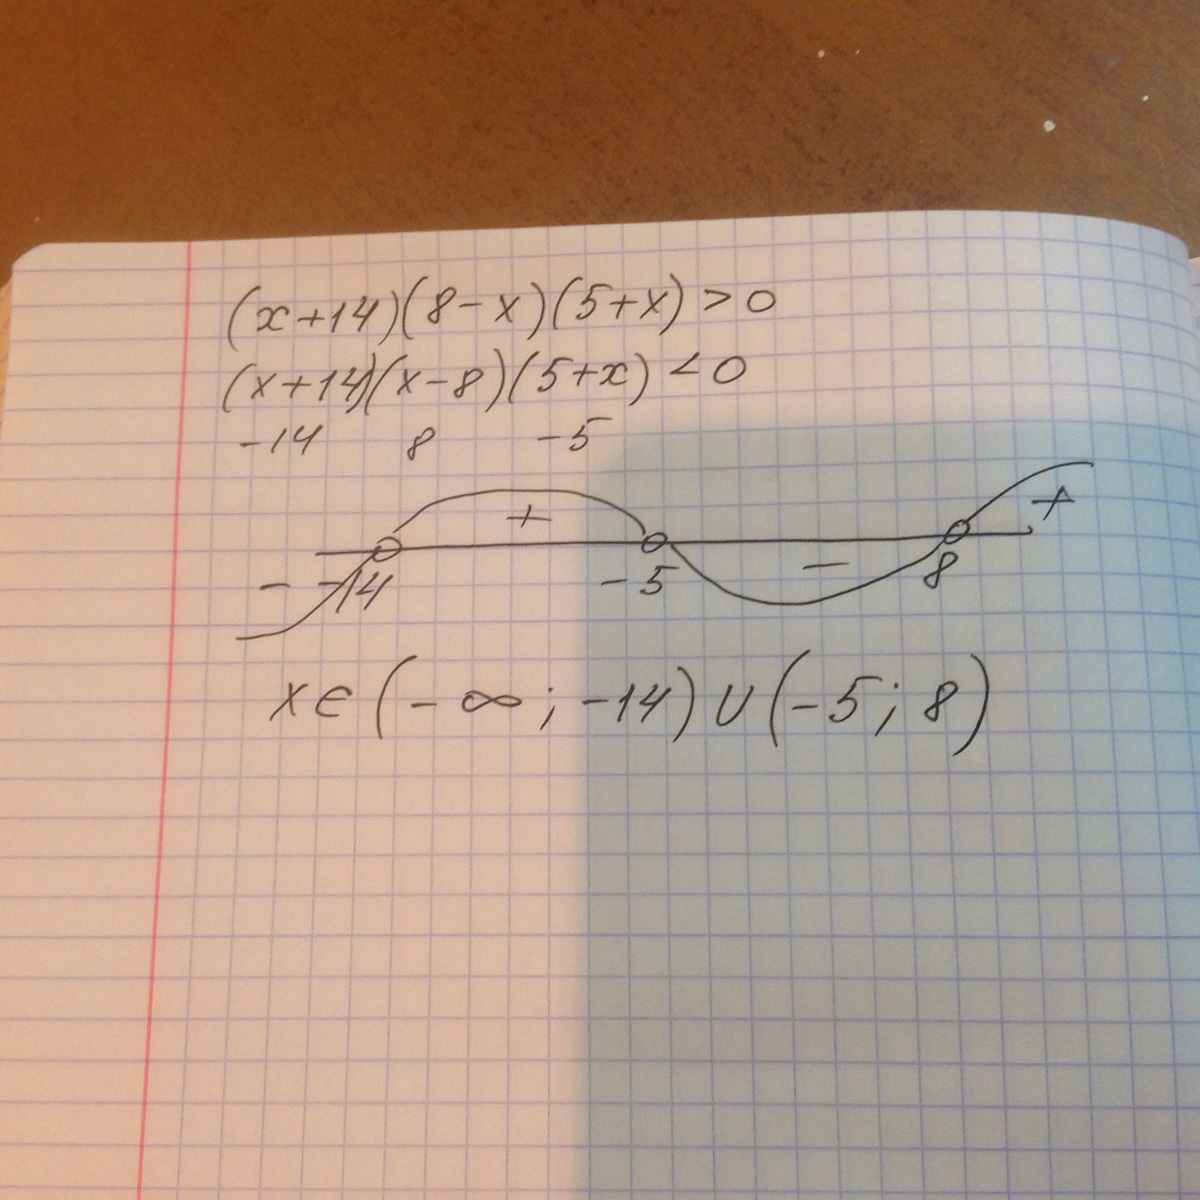 (x+14)(8-x)(5+x)>0
(x+14)(x-8)(5+x)<0
-14 8 -5
+ +
- -14 -5 - 8
x∈(-∞;-14)∪(-5;8)